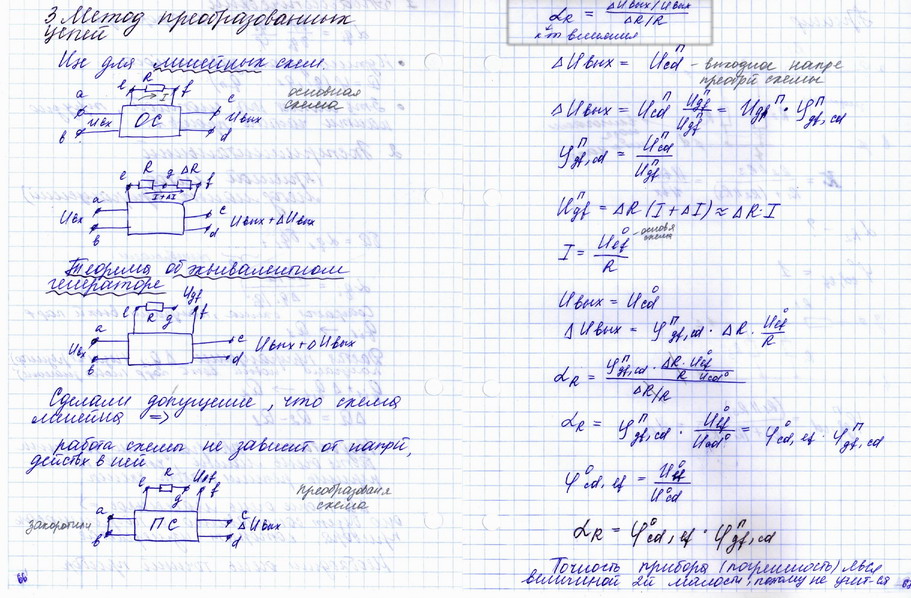 3. Метод преобразованных
цепей
Им для линейных схем.
e R f
I
основная
схема
a c
Uвх ОС Uвых
в d
e R g ΔR f
I+ΔI
a
Uвх c Uвых + ΔUвых
в d
Теорема об эквивалентном
генераторе
Ugf
e R g f
a
Uвх c Uвых + ΔUвых
в d
Сделали допущение, что схема
линейна =>
работа схемы не зависит от напр,
действ в ней
e R g Ugf f
преобразован
схема
закоротили a ПС c ΔUвых
в d
66
α_R = (ΔUвых/Uвых)/(ΔR/R)
к-т влияния
ΔUвых = U^п_cd - выходное напре
преобр схемы
ΔUвых = U^п_cd U^п_gf/U^п_gf = U^п_gf · φ^п_gf,cd
φ^п_gf,cd = U^п_cd/U^п_gf
U^п_gf = ΔR (I + ΔI) ≈ ΔR·I
I = U^о_ef/R - основн
схема
Uвых = U^о_cd
ΔUвых = φ^п_gf,cd · ΔR · U^о_ef/R
α_R = (φ^п_gf,cd · ΔR · U^о_ef/(R U^о_cd))/(ΔR/R)
α_R = φ^п_gf,cd · U^о_ef/U^о_cd = φ^о_cd,ef · φ^п_gf,cd
φ^о_cd,ef = U^о_ef/U^о_cd
α_R = φ^о_cd,ef · φ^п_gf,cd
Точность прибора (погрешность) явл
величиной 2й малости, потому не учит-ся